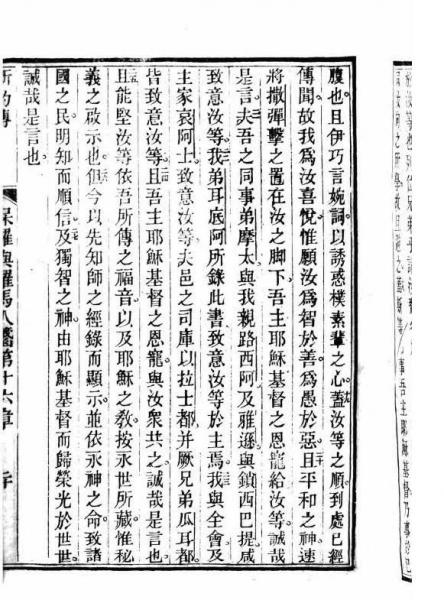 腹也且伊巧言婉詞以誘惑樸素輩之心蓋汝等之順到處已經
傳聞故我為汝喜悅惟願汝為智於善為愚於惡且平和之神速
將撒彈擊之置在汝之脚下吾主耶穌基督之恩寵給汝等誠哉
是言夫吾之同事弟摩太與我親路西阿及雅遜與鎖西巴提咸
致意汝等我弟耳底阿所錄此書致意汝等於主焉我與全會及
主家哀阿士致意汝等夫邑之司庫以拉士都并厥兄弟瓜耳都
皆致意汝等且吾主耶穌基督之恩寵與汝衆共之誠哉是言也
且能堅汝等依吾所傳之福音以及耶穌之教按永世所藏惟秘
義之啟示也但今以先知師之經錄而顯示並依永神之命致諸
國之民明知而順信及獨智之神由耶穌基督而歸榮光於世世
誠哉是言也
保羅與羅馬人書第十六章